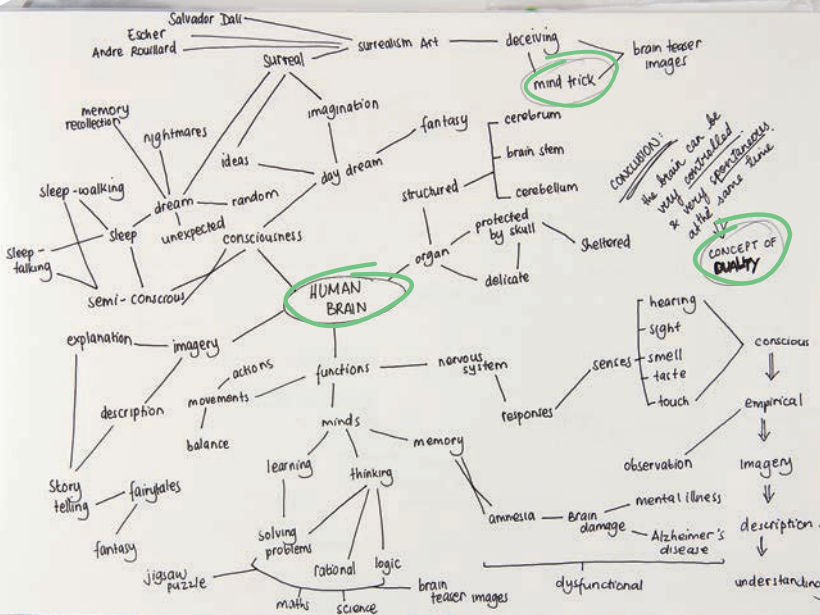 Salvador Dali
Escher
Andre Rouillard
surrealism Art
deceiving
brain teaser
images
mind trick
surreal
imagination
fantasy
memory
recollection
nightmares
ideas
day dream
cerebrum
brain stem
cerebellum
structured
CONCLUSION:
the brain can be
very controlled
& very spontaneous
at the same time
CONCEPT OF
DUALITY
sleep-walking
dream
random
unexpected
sleep
consciousness
sleep-
talking
semi-conscious
organ
protected
by skull
sheltered
delicate
HUMAN
BRAIN
explanation
imagery
description
story
telling
fairytales
fantasy
actions
movements
balance
functions
nervous
system
responses
senses
hearing
sight
smell
taste
touch
conscious
empirical
observation
Imagery
description
understanding
minds
learning
thinking
memory
solving
problems
rational
logic
jigsaw
puzzle
maths
science
brain
teaser images
amnesia
Brain
damage
mental illness
Alzheimer's
disease
dysfunctional